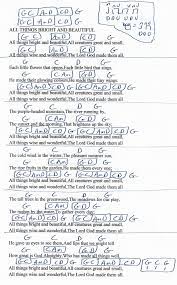 G C A mD C D G
ALL THINGS BRIGHT AND BEAUTIFUL
G C A mD C D G
All things bright and beautiful, All creatures great and small,
All things wise and wonderful, The Lord God made them all.
C D G
Each little flower that opens, Each little bird that sings,
C Am D G
He made their glowing colours, He made their tiny wings.
G C A mD C D G
All things bright and beautiful, All creatures great and small,
All things wise and wonderful, The Lord God made them all.
C D G
The purple-headed mountains, The river running by,
C Am D G
The sunset and the morning, That brightens up the sky.
G C A mD C D G
All things bright and beautiful, All creatures great and small,
All things wise and wonderful, The Lord God made them all.
C D G
The cold wind in the winter, The pleasant summer sun,
C Am D G
The ripe fruits in the garden, He made them every one.
G C A mD C D G
All things bright and beautiful, All creatures great and small,
All things wise and wonderful, The Lord God made them all.
C D G
The tall trees in the greenwood, The meadows
C Am D G
The rushes by the water,
G C A mD C D G
All things bright and beautiful, All creatures great and small,
All things wise and wonderful, The Lord God made them all.
C D G
He gave us eyes to see them, And lips that we might tell
C Am D G
How great is God Almighty, Who has made all things well.
All things bright and beautiful, All creatures great and small,
All things wise and wonderful, The Lord God made them all.